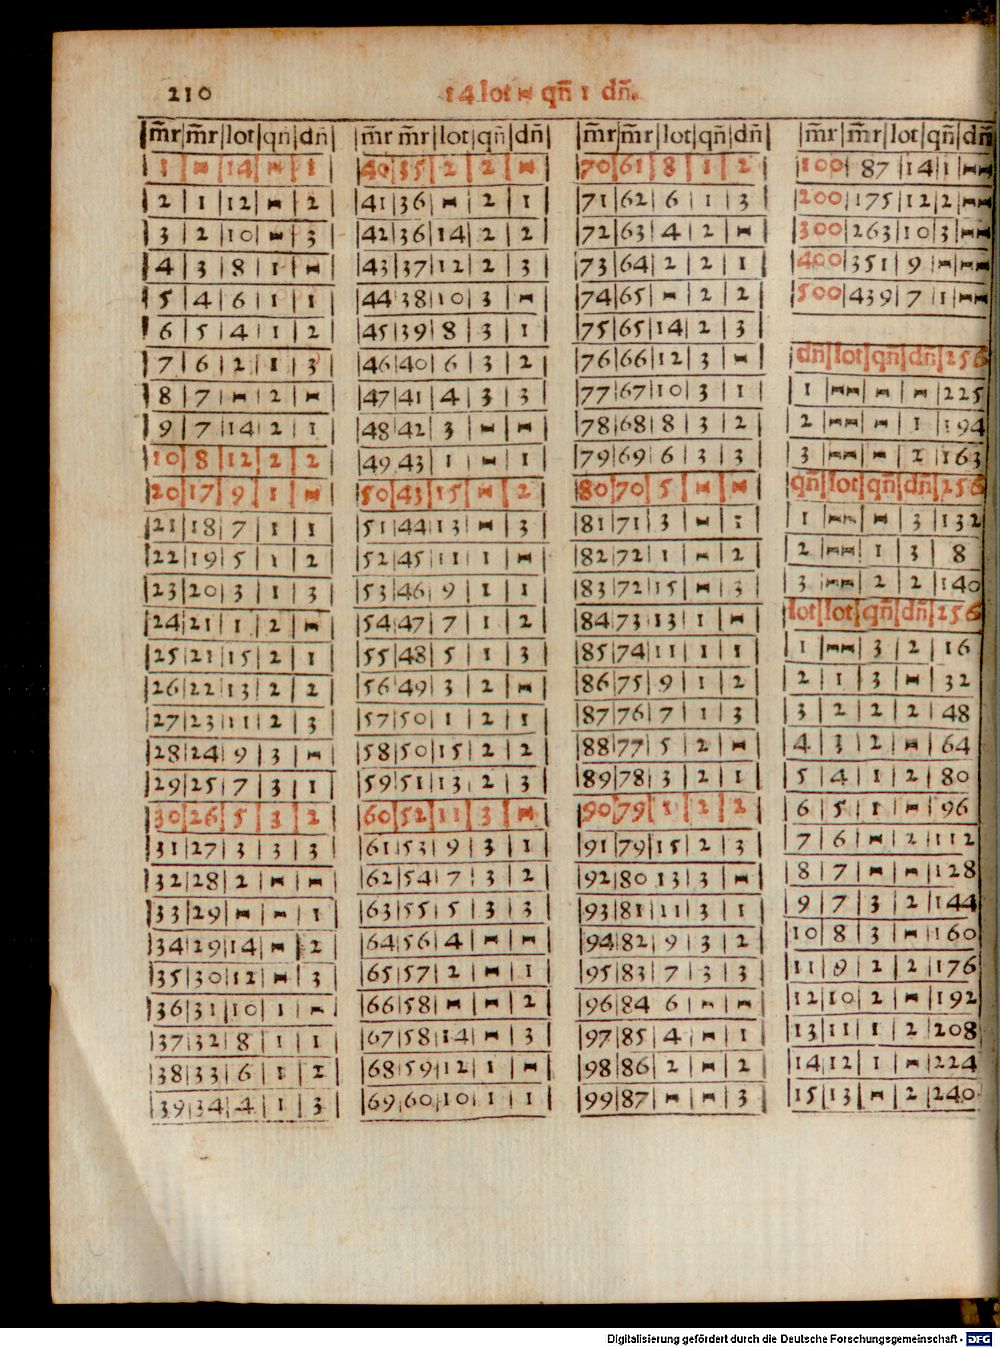 210
14 lot ⋈ qñ 1 dñ.
m̃r|m̃r|lot|qñ|dñ
1|⋈|14|⋈|1
2|1|12|⋈|2
3|2|10|⋈|3
4|3|8|1|⋈
5|4|6|1|1
6|5|4|1|2
7|6|2|1|3
8|7|⋈|2|⋈
9|7|14|2|1
10|8|12|2|2
20|17|9|1|⋈
21|18|7|1|1
22|19|5|1|2
23|20|3|1|3
24|21|1|2|⋈
25|21|15|2|1
26|22|13|2|2
27|23|11|2|3
28|24|9|3|⋈
29|25|7|3|1
30|26|5|3|2
31|27|3|3|3
32|28|2|⋈|⋈
33|29|⋈|⋈|1
34|29|14|⋈|2
35|30|12|⋈|3
36|31|10|1|⋈
37|32|8|1|1
38|33|6|1|2
39|34|4|1|3
m̃r m̃r|lot|qñ|dñ
40|35|2|2|⋈
41|36|⋈|2|1
42|36|14|2|2
43|37|12|2|3
44|38|10|3|⋈
45|39|8|3|1
46|40|6|3|2
47|41|4|3|3
48|42|3|⋈|⋈
49|43|1|⋈|1
50|43|15|⋈|2
51|44|13|⋈|3
52|45|11|1|⋈
53|46|9|1|1
54|47|7|1|2
55|48|5|1|3
56|49|3|2|⋈
57|50|1|2|1
58|50|15|2|2
59|51|13|2|3
60|52|11|3|⋈
61|53|9|3|1
62|54|7|3|2
63|55|5|3|3
64|56|4|⋈|⋈
65|57|2|⋈|1
66|58|⋈|⋈|2
67|58|14|⋈|3
68|59|12|1|⋈
69|60|10|1|1
m̃r|m̃r|lot|qñ|dñ
70|61|8|1|2
71|62|6|1|3
72|63|4|2|⋈
73|64|2|2|1
74|65|⋈|2|2
75|65|14|2|3
76|66|12|3|⋈
77|67|10|3|1
78|68|8|3|2
79|69|6|3|3
80|70|5|⋈|⋈
81|71|3|⋈|1
82|72|1|⋈|2
83|72|15|⋈|3
84|73|13|1|⋈
85|74|11|1|1
86|75|9|1|2
87|76|7|1|3
88|77|5|2|⋈
89|78|3|2|1
90|79|1|2|2
91|79|15|2|3
92|80 13|3|⋈
93|81|11|3|1
94|82|9|3|2
95|83|7|3|3
96|84 6|⋈|⋈
97|85|4|⋈|1
98|86|2|⋈|2
99|87|⋈|⋈|3
m̃r|m̃r|lot|qñ|dñ
100|87|14|1|⋈⋈
200|175|12|2|⋈⋈
300|263|10|3|⋈⋈
400|351|9|⋈|⋈⋈
500|439|7|1|⋈⋈
dñ|lot|qñ|dñ|256
1|⋈⋈|⋈|⋈|225
2|⋈⋈|⋈|1|194
3|⋈⋈|⋈|2|163
qñ|lot|qñ|dñ|256
1|⋈⋈|⋈|3|132
2|⋈⋈|1|3|8
3|⋈⋈|2|2|140
lot|lot|qñ|dñ|256
1|⋈⋈|3|2|16
2|1|3|⋈|32
3|2|2|2|48
4|3|2|⋈|64
5|4|1|2|80
6|5|1|⋈|96
7|6|⋈|2|112
8|7|⋈|⋈|128
9|7|3|2|144
10|8|3|⋈|160
11|9|2|2|176
12|10|2|⋈|192
13|11|1|2|208
14|12|1|⋈|224
15|13|⋈|2|240
Digitalisierung gefördert durch die Deutsche Forschungsgemeinschaft - DFG